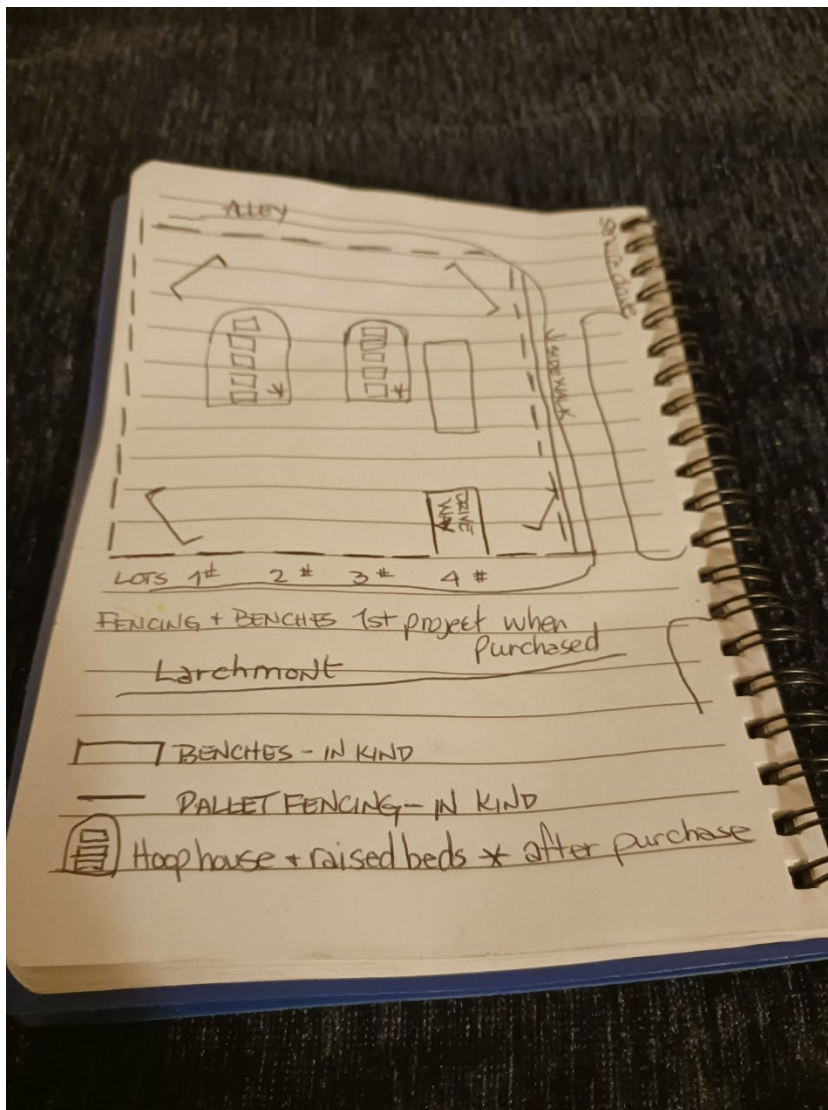 ALLEY
SIDEWALK
DRIVE
WAY
LOTS 1# 2# 3# 4#
FENCING + BENCHES 1st project when
purchased
Larchmont
BENCHES - IN KIND
PALLET FENCING - IN KIND
Hoop house + raised beds * after purchase